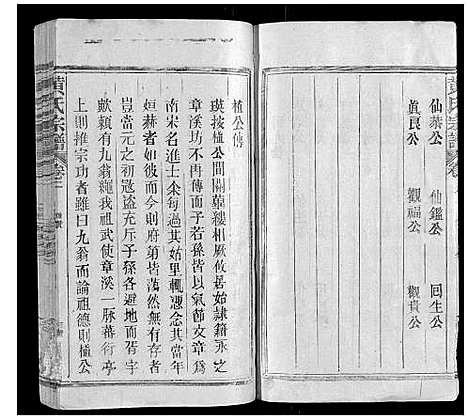 黃氏宗譜
仙恭公 仙鑑公 回生公
眞良公 觀福公 觀貴公
植公傳
瑛按植公間關蓽縷相厥攸居始隸籍永之
章溪坊不再傳而子若孫皆以氣節文章爲
南宋名進士余每過其姑里輒憑念其當年
烜赫者而今則府第皆蕩然無有存者
豈當元之初寇盜充斥子孫各避地而胥宇
歟穎有九翁龍我祖武使章溪一脉蕃衍亭
上則推宗功者雖曰九翁而論祖德則植公
黃氏宗譜 卷